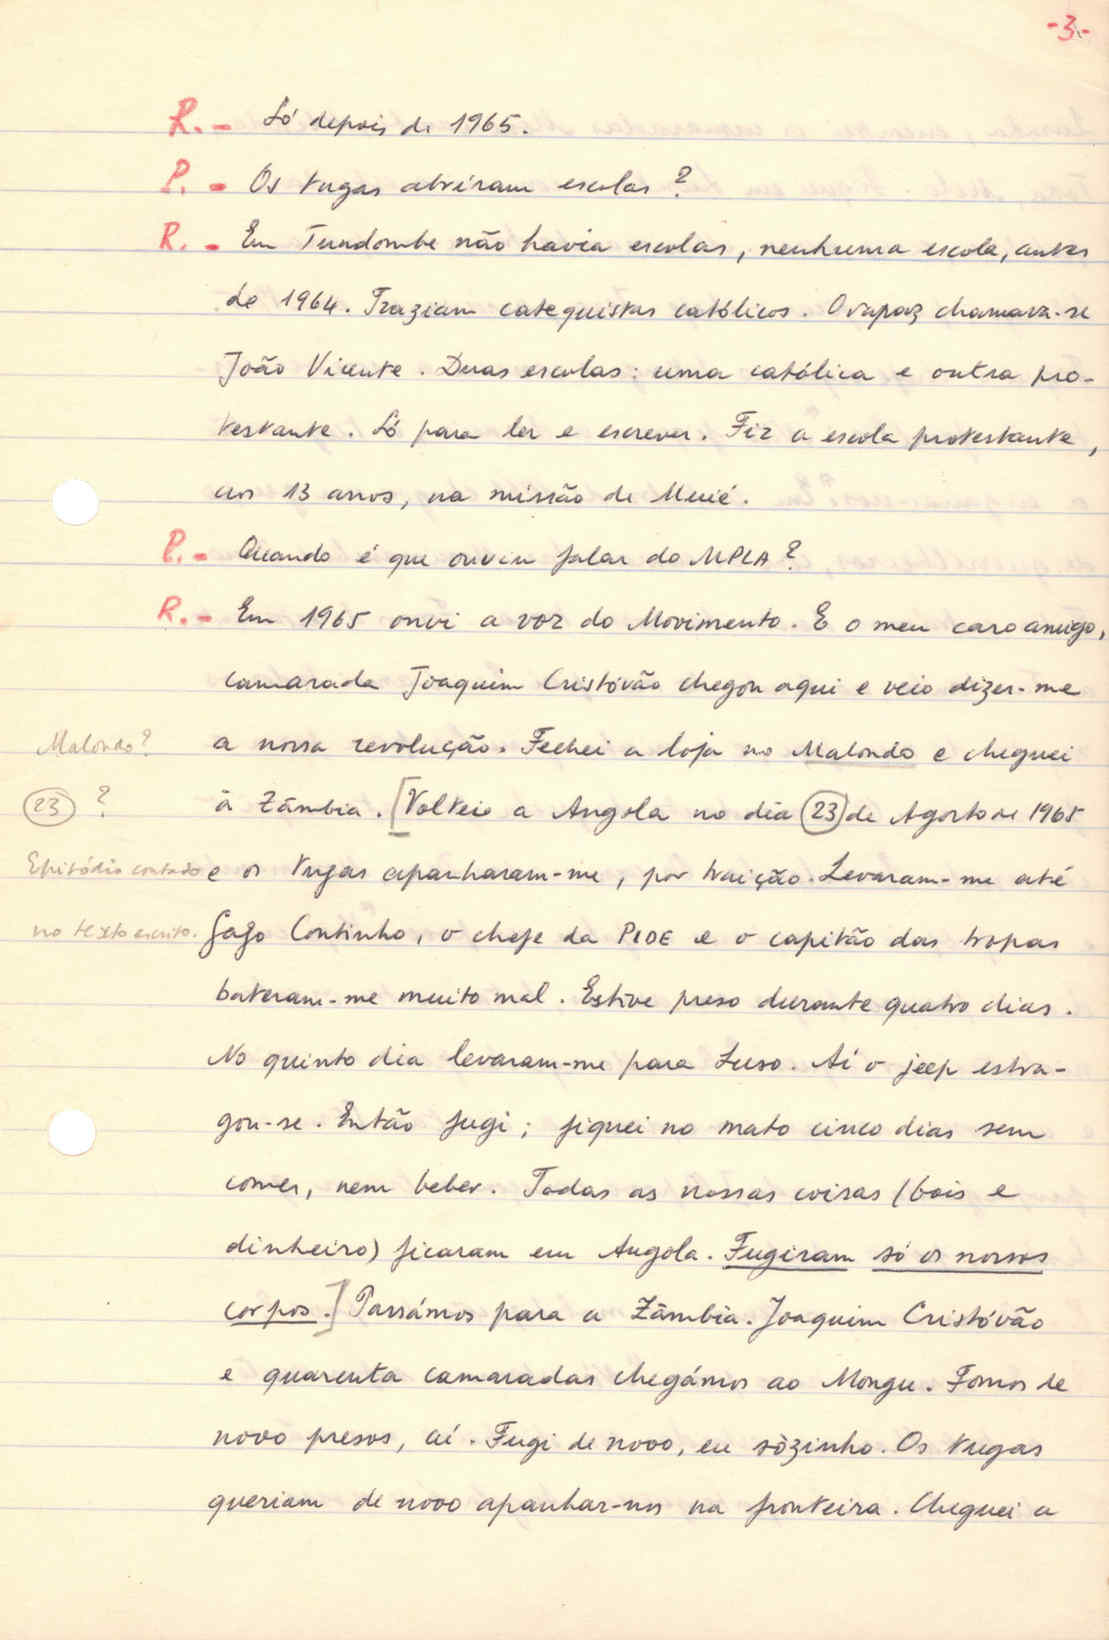 -3-
R. - Só depois de 1965.
P. - Os tugas abriram escolas?
R. - Em Tundombe não havia escolas, nenhuma escola, antes
de 1964. Traziam catequistas católicos. O rapaz chamava-se
João Vicente. Duas escolas: uma católica e outra pro-
testante. Só para ler e escrever. Fiz a escola protestante,
aos 13 anos, na missão de Muié.
P. - Quando é que ouviu falar do MPLA?
R. - Em 1965 ouvi a voz do Movimento. E o meu caro amigo,
camarada Joaquim Cristóvão chegou aqui e veio dizer-me
Malondo? a nossa revolução. Fechei a loja no Malondo e cheguei
23 ? à Zâmbia. [Volteio a Angola no dia 23 de Agosto de 1965
Episódio contado e os tugas apanharam-me, por traição. Levaram-me até
no texto escrito. Gago Coutinho, o chefe da PIDE e o capitão das tropas
bateram-me muito mal. Estive preso durante quatro dias.
No quinto dia levaram-me para Luso. Aí o jeep estra-
gou-se. Então fugi; fiquei no mato cinco dias sem
comer, nem beber. Todas as nossas coisas (bois e
dinheiro) ficaram em Angola. Fugiram só os nossos
corpos.] Passámos para a Zâmbia. Joaquim Cristóvão
e quarenta camaradas chegámos ao Mongu. Fomos de
novo presos, aí. Fugi de novo, eu sòzinho. Os tugas
queriam de novo apanhar-nos na fronteira. Cheguei a